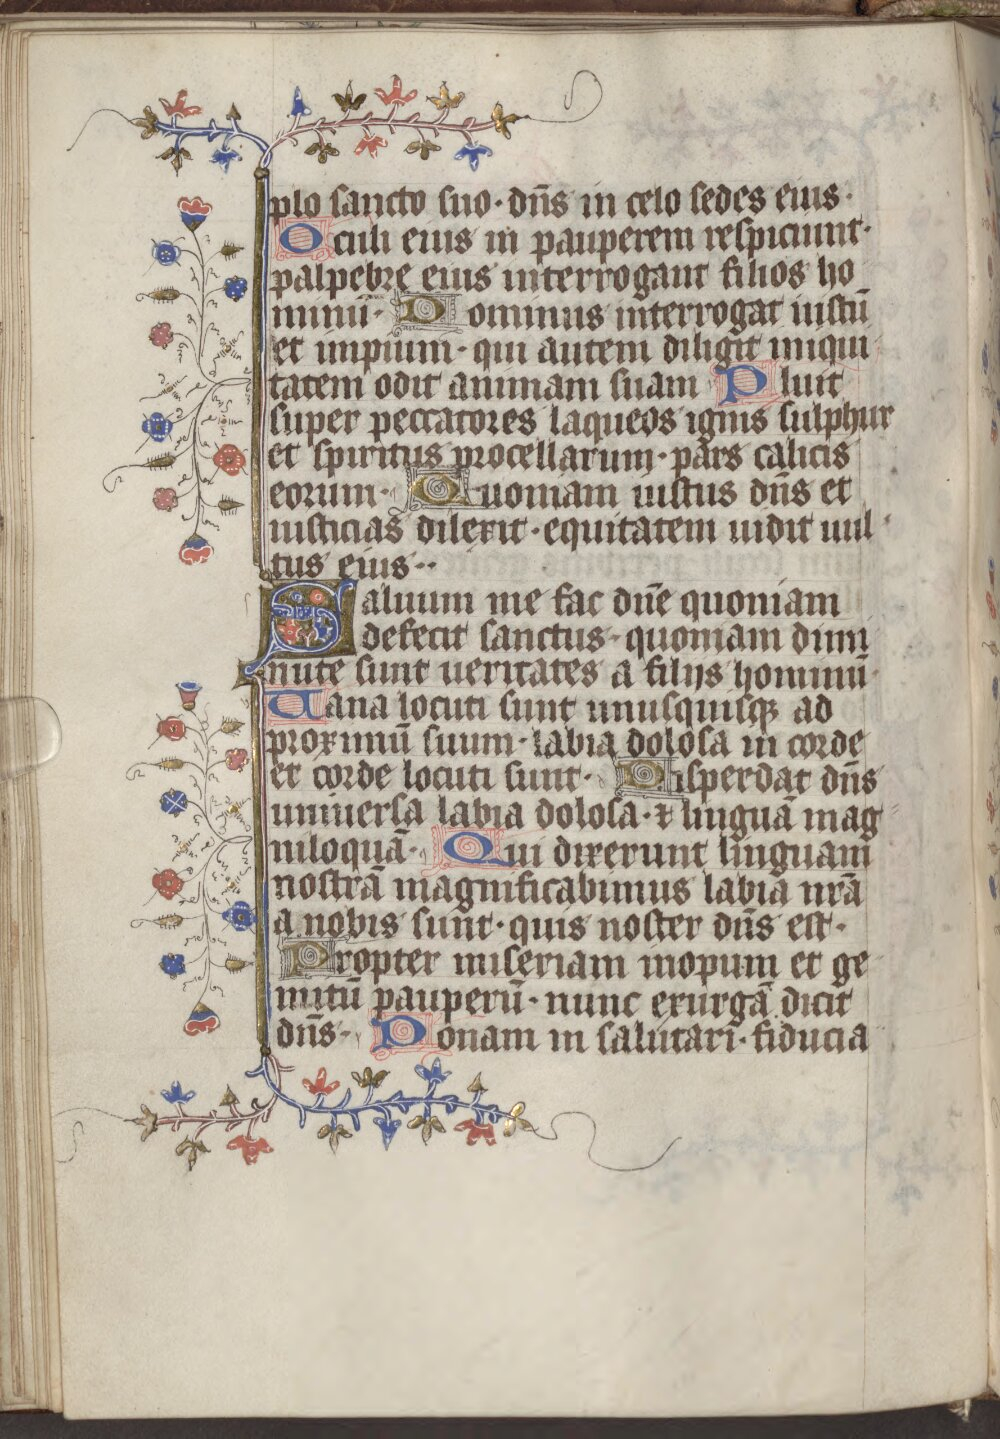 plo sancto suo · dn̄s in celo sedes eius ·
Oculi eius in pauperem respiciunt ·
palpebre eius interrogant filios ho
minū · Dominus interrogat iustū
et impium · qui autem diligit iniqui
tatem odit animam suam Pluit
super peccatores laqueos ignis sulphur
et spiritus procellarum · pars calicis
eorum · Quoniam iustus dn̄s et
iusticias dilexit · equitatem uidit uul
tus eius ··
Saluum me fac dn̄e quoniam
defecit sanctus · quoniam dimi
nute sunt ueritates a filijs hominū ·
Uana locuti sunt unusquisqꝫ ad
proximū suum · labia dolosa in corde
et corde locuti sunt · Disperdat dn̄s
uniuersa labia dolosa · ⁊ linguā mag
niloquā · Qui dixerunt linguam
nostrā magnificabimus labia nr̄a
a nobis sunt · quis noster dn̄s est ·
Propter miseriam inopum et ge
mitū pauperū · nunc exurgā dicit
dn̄s · Ponam in salutari · fiducia